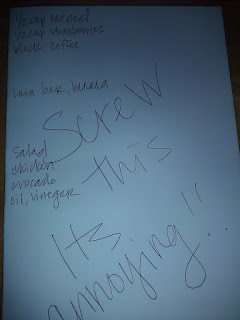 1/2 cup oatmeal
1/2 cup strawberries
black coffee
Lara bar, banana
Screw
Salad
chicken
avocado
oil, vinegar
this
Its
annoying!!..